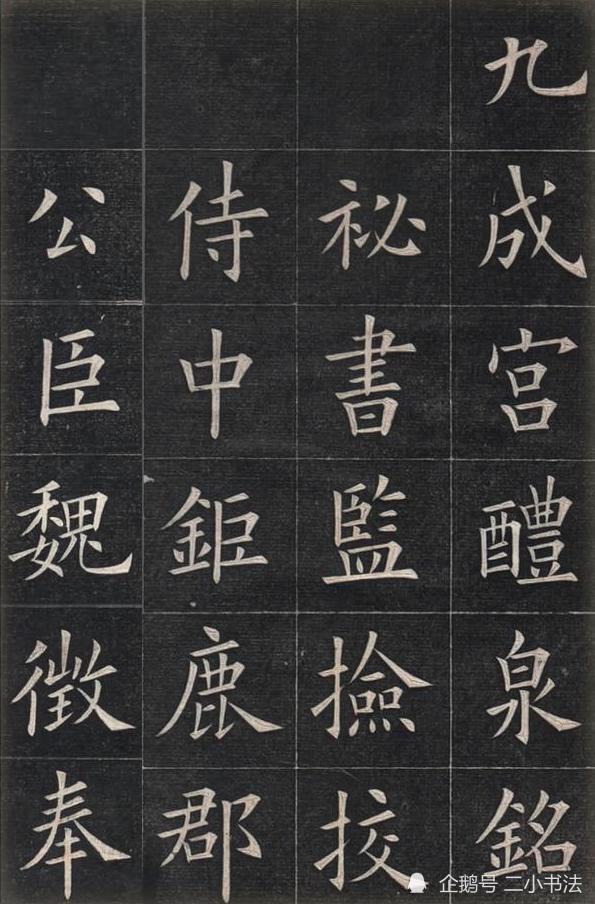 九成宮醴泉銘
祕書監撿挍
侍中鉅鹿郡
公臣魏徵奉
企鹅号 二小书法